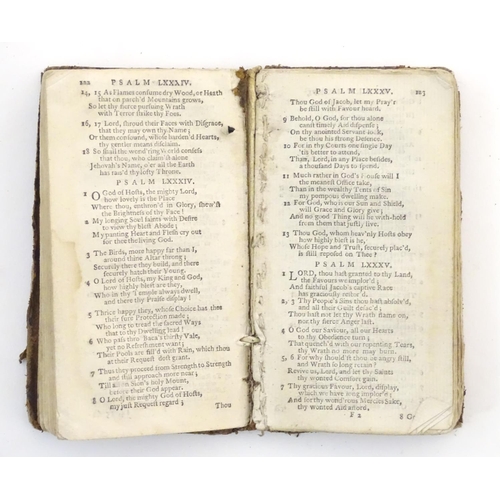 222 PSALM LXXXIV.
14, 15 As Flames consume dry Wood, or Heath
that on parch'd Mountains grows,
So let thy fierce pursuing Wrath
with Terror strike thy Foes.
16, 17 Lord, shroud their Faces with Disgrace,
that they may own thy Name;
Or them confound, whose harden'd Hearts,
thy gentler means disclaim.
18 So shall the wond'ring World confess
that thou, who claim'st alone
Jehovah's Name, o'er all the Earth
hast rais'd thy lofty Throne.
PSALM LXXXIV.
1 O God of Hosts, the mighty Lord,
how lovely is the Place
Where thou, enthron'd in Glory, shew'st
the Brightness of thy Face!
2 My longing Soul faints with Desire
to view thy blest Abode;
My panting Heart and Flesh cry out
for thee the living God.
3 The Birds, more happy far than I,
around thine Altar throng;
Securely there they build, and there
securely hatch their Young.
4 O Lord of Hosts, my King and God,
how highly blest are they,
Who in thy Temple always dwell,
and there thy Praise display!
5 Thrice happy they, whose Choice has thee
their sure Protection made;
Who long to tread the sacred Ways
that to thy Dwelling lead!
6 Who pass thro' Baca's thirsty Vale,
yet no Refreshment want;
Their Pools are fill'd with Rain, which thou
at their Request dost grant.
7 Thus they proceed from Strength to Strength
and still approach more near;
Till all on Sion's holy Mount,
before their God appear.
8 O Lord, the mighty God of Hosts,
my just Request regard;
Thou
PSALM LXXXV. 223
Thou God of Jacob, let my Pray'r
be still with Favour heard.
9 Behold, O God, for thou alone
canst timely Aid dispense;
On thy anointed Servant look,
be thou his strong Defence.
10 For in thy Courts one single Day
'tis better to attend,
Than, Lord, in any Place besides,
a thousand Days to spend.
11 Much rather in God's House will I
the meanest Office take,
Than in the wealthy Tents of Sin
my pompous dwelling make.
12 For God, who is our Sun and Shield,
will Grace and Glory give;
And no good Thing will he with-hold
from them that justly live.
13 Thou God, whom heav'nly Hosts obey
how highly blest is he,
Whose Hope and Trust, securely plac'd,
is still repos'd on Thee?
PSALM LXXXV.
1 LORD, thou hast granted to thy Land,
the Favours we implor'd;
And faithful Jacob's captive Race
hast graciously restor'd.
2, 3 Thy People's Sins thou hast absolv'd,
and all their Guilt defac'd;
Thou hast not let thy Wrath flame on,
nor thy fierce Anger last.
4 O God our Saviour, all our Hearts
to thy Obedience turn;
That quench'd with our repenting Tears,
thy Wrath no more may burn.
5, 6 For why should'st thou be angry still,
and Wrath so long retain?
Revive us, Lord, and let thy Saints
thy wonted Comfort gain.
7 Thy gracious Favour, Lord, display,
which we have long implor'd;
And for thy wond'rous Mercies Sake,
thy wonted Aid afford.
F 2